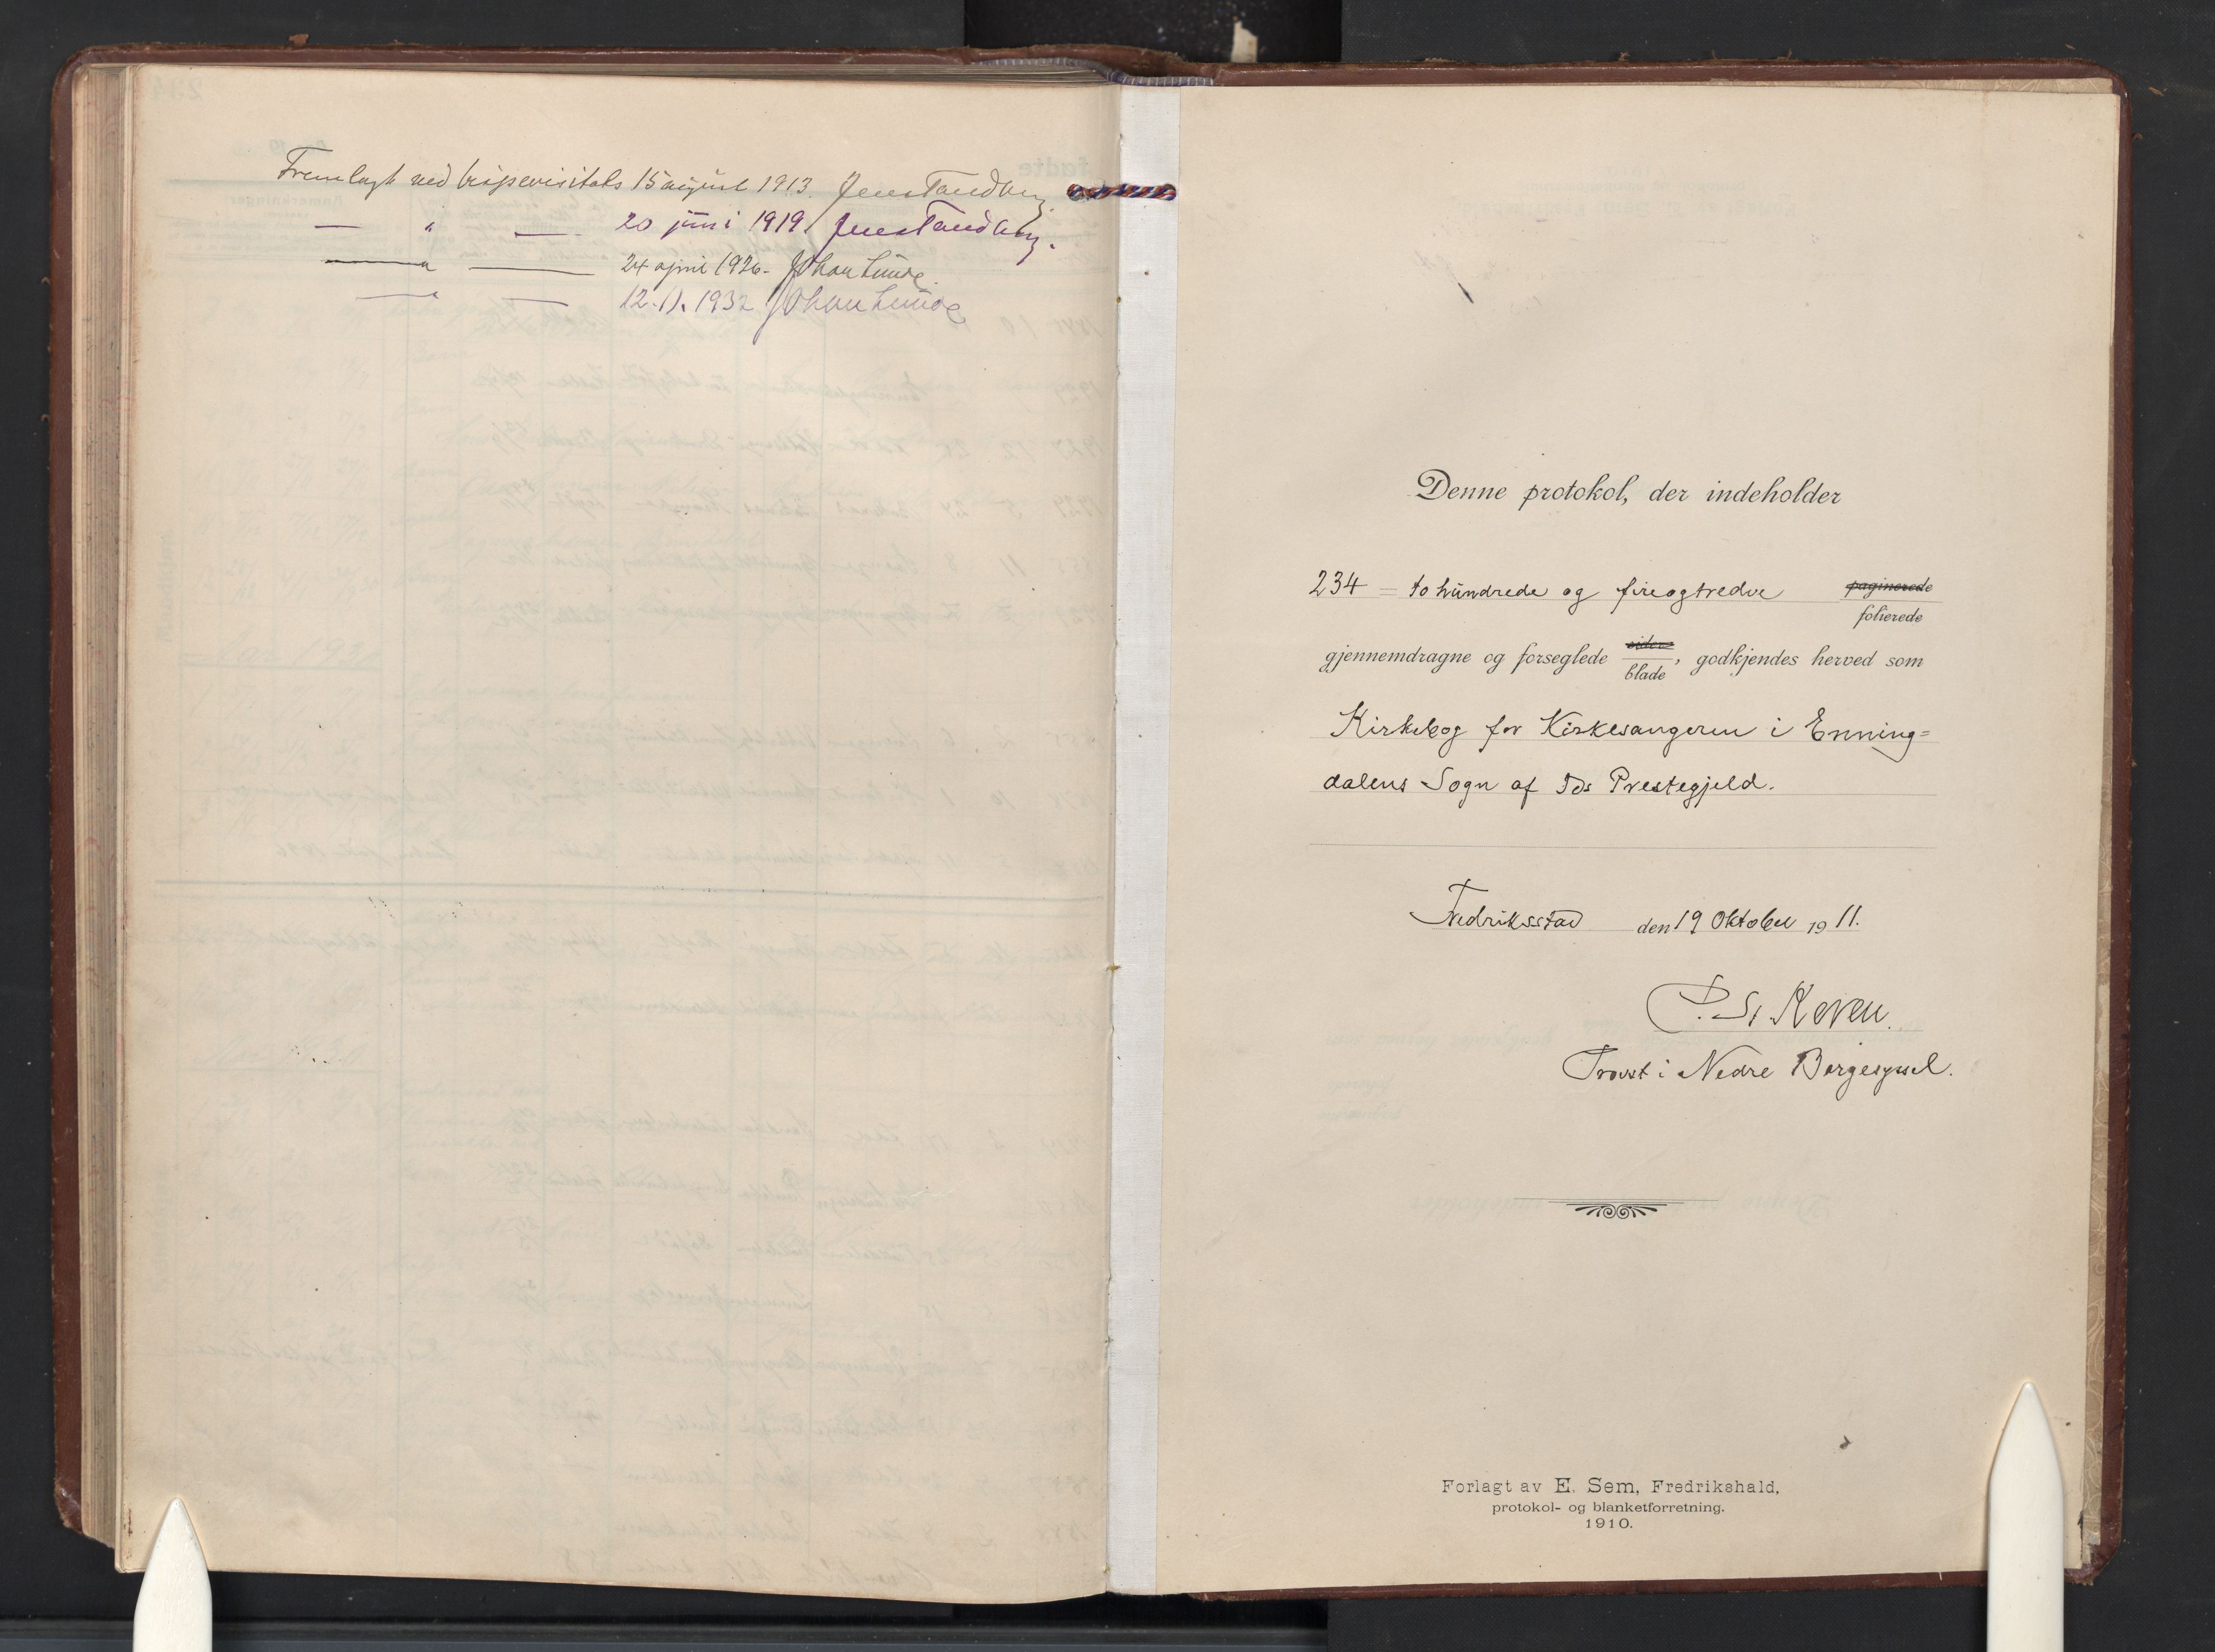 Fremlagt ved bispevisitats 15 august 1913. Jens Tandberg.
— " — 20 juni 1919. Jens Tandberg.
— " — 24 april 1926. Johan Lunde.
— " — 12.11.1932 Johan Lunde
Denne protokol, der indeholder
234 = to hundrede og fireogtredve paginerede
folierede
gjennemdragne og forseglede sider
blade, godkjendes herved som
Kirkebog for Kirkesangeren i Enning=
dalens Sogn af Ids Prestegjeld.
Fredriksstad den 19 Oktober 1911.
Provst i Nedre Borgesyssel.
Forlagt av E. Sem, Fredrikshald,
protokol- og blanketforretning.
1910.